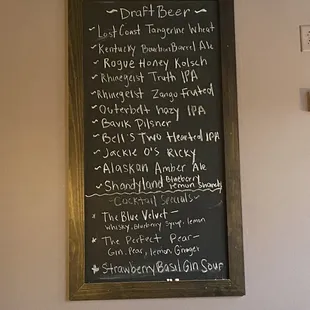 ~ Draft Beer ~
✓ Lost Coast Tangerine Wheat
✓ Kentucky Bourbon Barrel Ale
✓ Rogue Honey Kolsch
✓ Rhinegeist Truth IPA
✓ Rhinegeist Zango Fruited
✓ Outerbelt hazy IPA
✓ Bavik Pilsner
✓ Bell's Two Hearted IPA
✓ Jackie O's Ricky
✓ Alaskan Amber Ale
✓ Shandyland Blueberry lemon Shandy
~ Cocktail Specials ~
* The Blue Velvet –
Whisky, Blueberry Syrup, lemon
* The Perfect Pear –
Gin, Pear, lemon Ginger
* Strawberry Basil Gin Sour